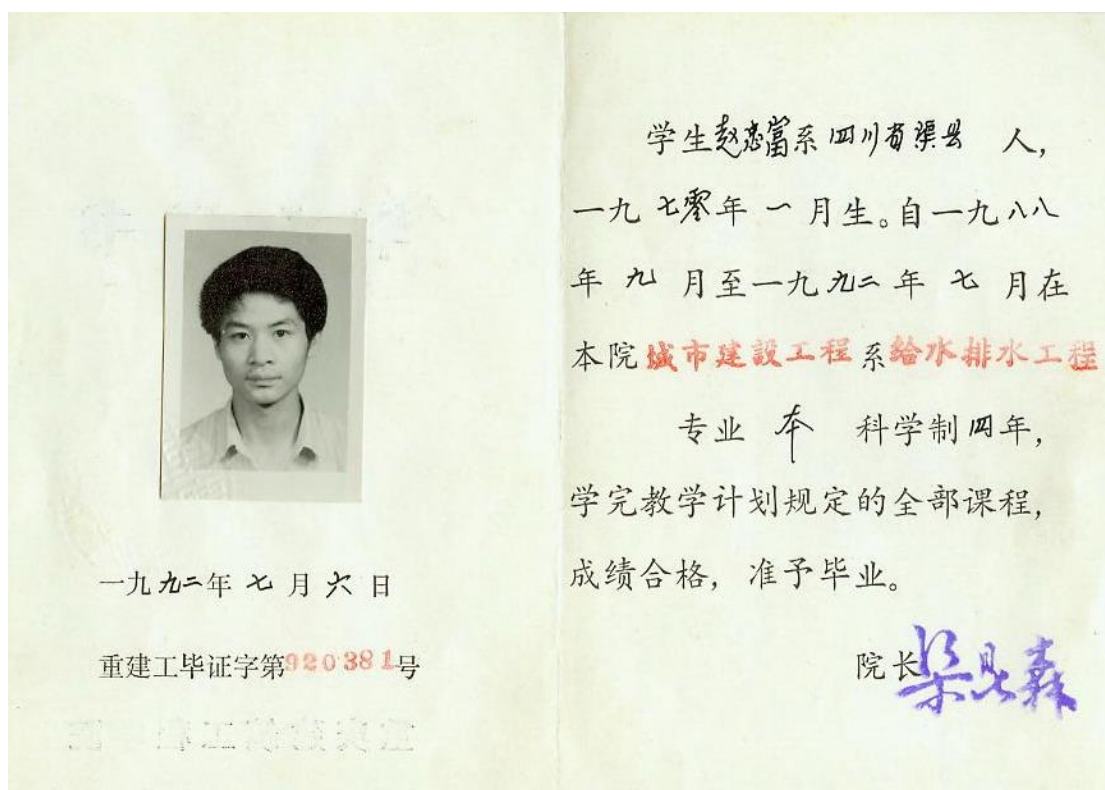 一九九二年七月六日
重建工毕证字第920381号
学生赵忠富系四川省渠县 人，
一九七零年一月生。自一九八八
年九月至一九九二年七月在
本院城市建設工程系给水排水工程
专业 本 科学制四年，
学完教学计划规定的全部课程，
成绩合格，准予毕业。
院长梁鼎森